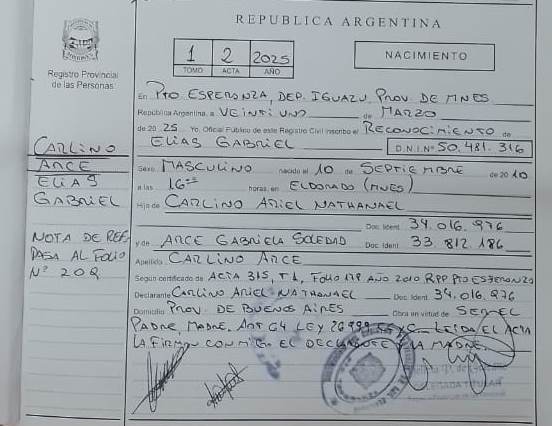 REPUBLICA ARGENTINA
Registro Provincial
de las Personas
1 2 2025
TOMO ACTA AÑO
NACIMIENTO
En Pto ESPERANZA, DEP. IGUAZU, Prov. DE MNES
República Argentina, a VEINTI UNO de MARZO
de 20 25 Yo, Oficial Público de este Registro Civil inscribo el RECONOCIMIENTO de
ELIAS GABRIEL D.N.I. Nº 50.481.316
Sexo MASCULINO nacido el 10 de SEPTIEMBRE de 20 10
a las 16 horas, en ELDORADO (MNES)
Hijo de CARLINO ARIEL NATHANAEL
Doc. Ident. 34.016.976
y de ARCE GABRIELA SOLEDAD Doc. Ident. 33.812.186
Apellido CARLINO ARCE
Según certificado de ACTA 315, T 1, Folio 178 AÑO 2010 RPP Pto ESPERANZA
Declarante CARLINO ARIEL NATHANAEL Doc. Ident. 34.016.976
Domicilio PROV. DE BUENOS AIRES Obra en virtud de SER EL
PADRE, MADRE, Art 64 LEY 26.994 LEIDA EL ACTA
LA FIRMAN CONMIGO EL DECLARANTE Y LA MADRE
CARLINO
ARCE
ELIAS
GABRIEL
NOTA DE REF.
PASA AL FOLIO
Nº 202